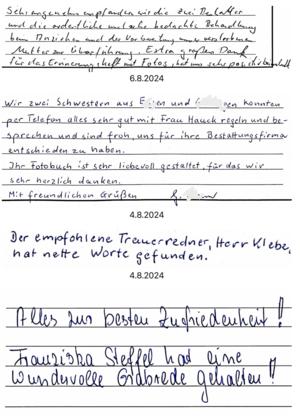 Sehr angenehm empfanden wir die zwei Bestatter
und die ordentliche und sehr bedachte Behandlung
beim Anziehen und der Vorbereitung unserer verstorbenen
Mutter zur Überführung. Extra großen Dank
für das Erinnerungsheft mit Fotos, hat uns sehr
6.8.2024
Wir zwei Schwestern aus E und konnten
per Telefon alles sehr gut mit Frau Hauck regeln und be-
sprechen und sind froh, uns für ihre Bestattungsfirma
entschieden zu haben.
Ihr Fotobuch ist sehr liebevoll gestaltet, für das wir
sehr herzlich danken.
Mit freundlichen Grüßen
4.8.2024
Der empfohlene Trauerredner, Herr Klebe,
hat nette Worte gefunden.
4.8.2024
Alles zur besten Zufriedenheit!
Franziska Steffel hat eine
wundervolle Grabrede gehalten!!